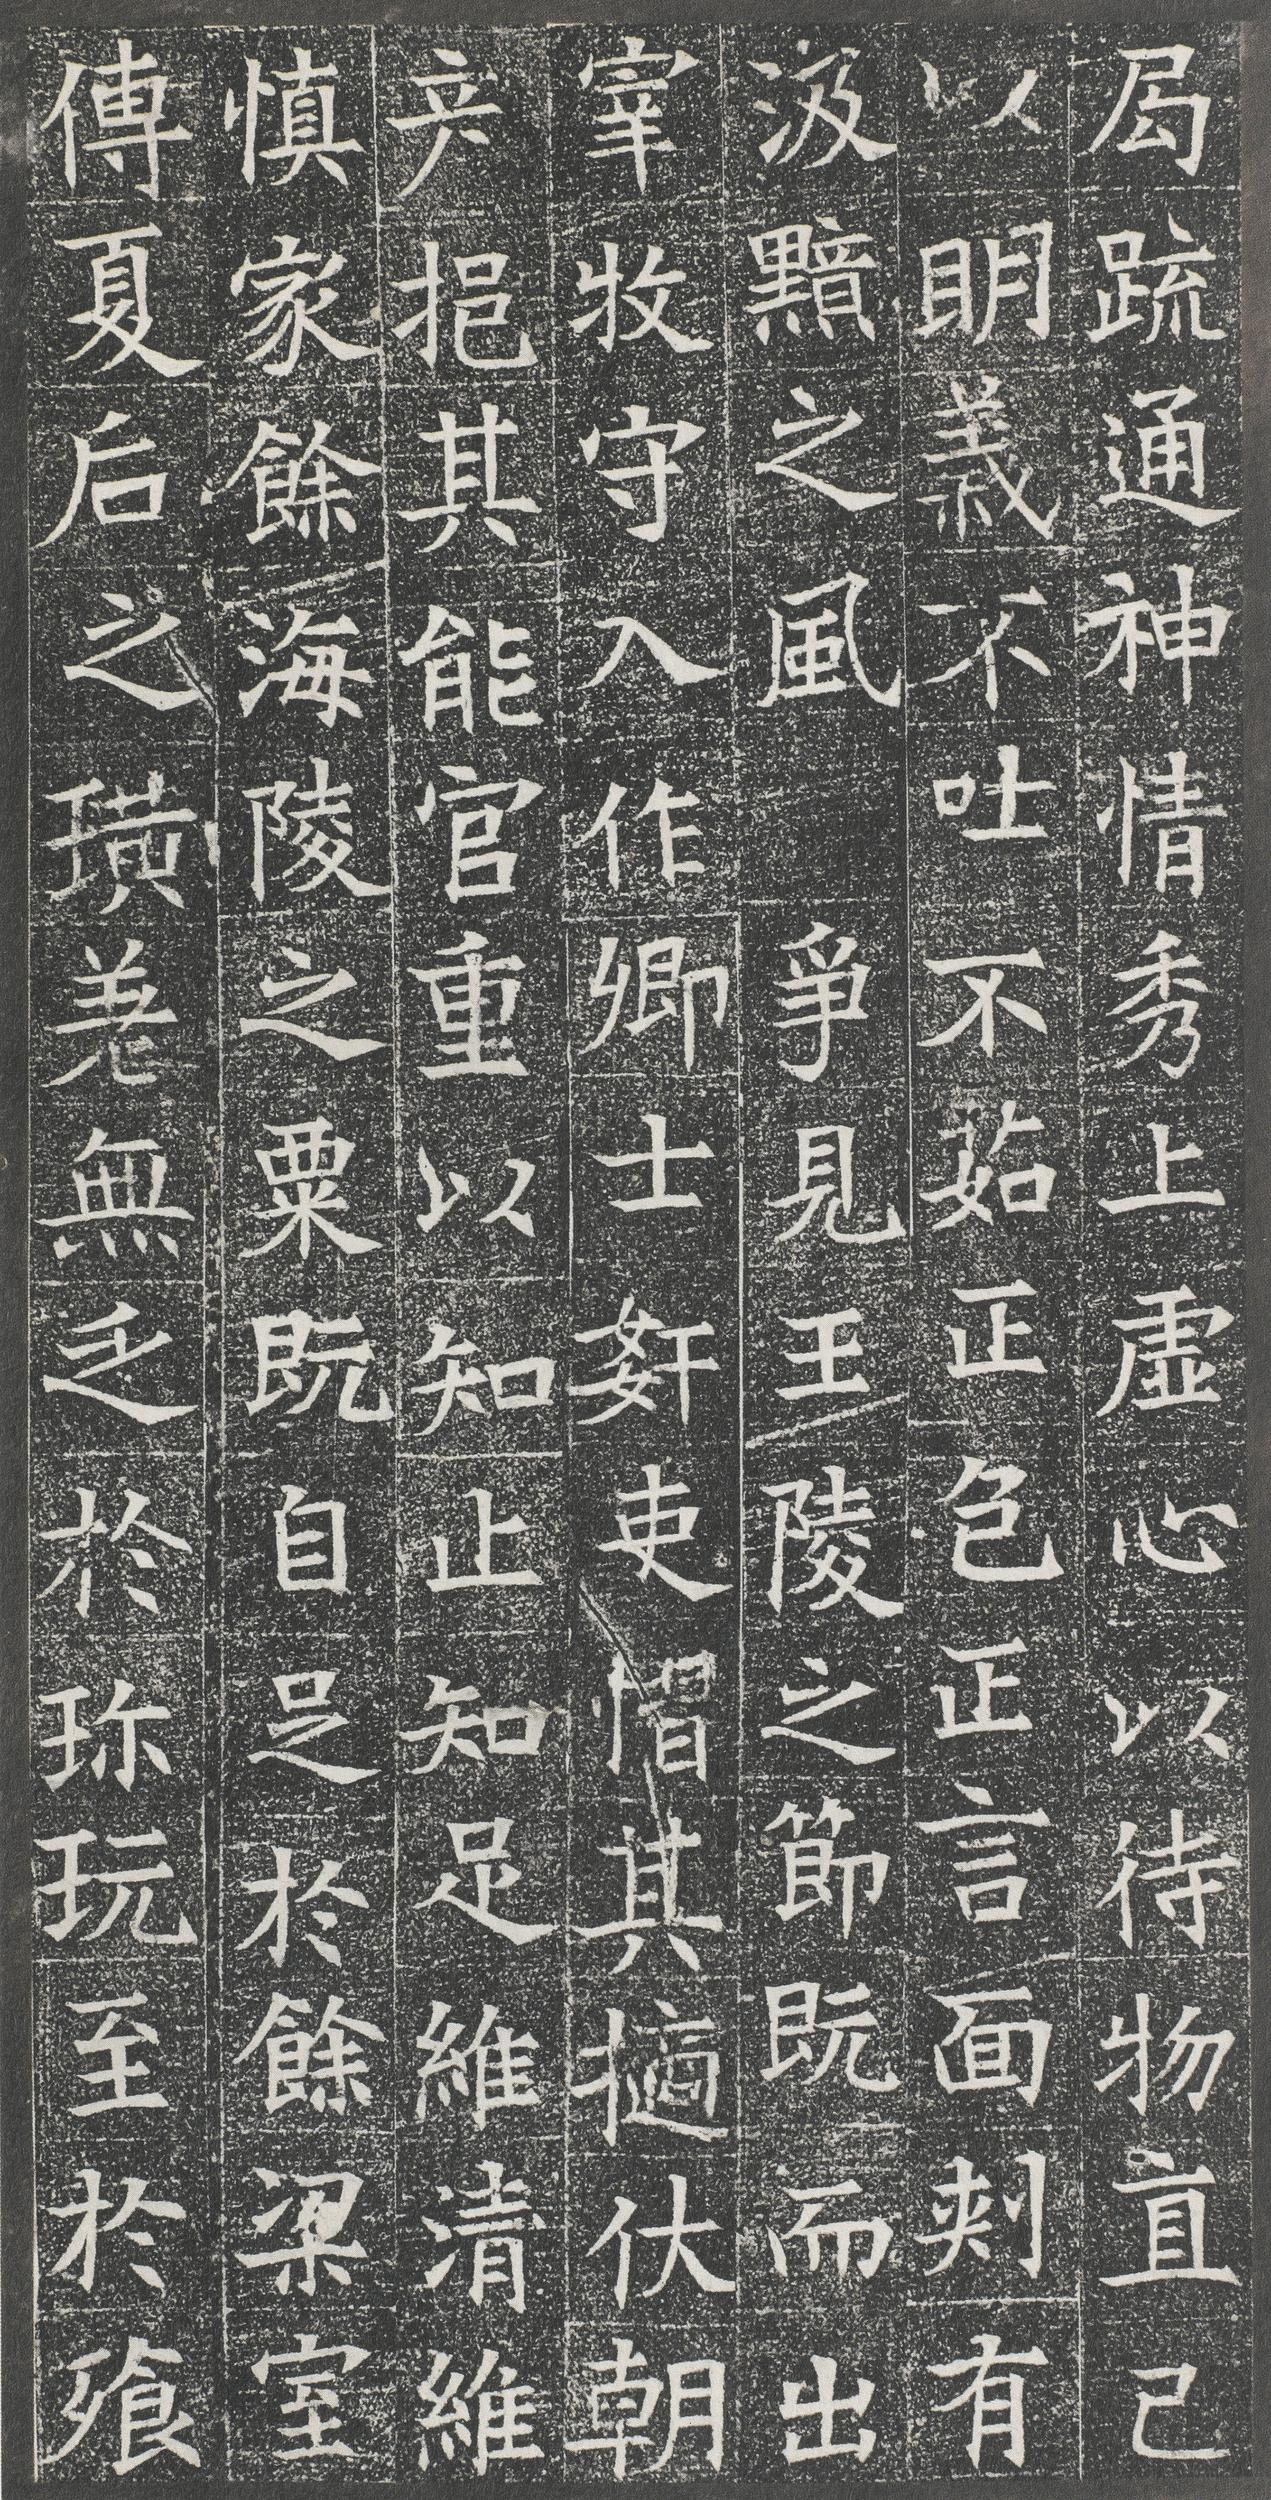 局疏通神情秀上虛心以待物直己
以明義不吐不茹正色正言面刾有
汲黯之風 爭見王陵之節既而出
宰牧守入作卿士姧吏慴其擿伏朝
彦挹其能官重以知止知足維清維
慎家餘海陵之粟既自足於餘梁室
傳夏后之璜羌無乏於珎玩至於飱